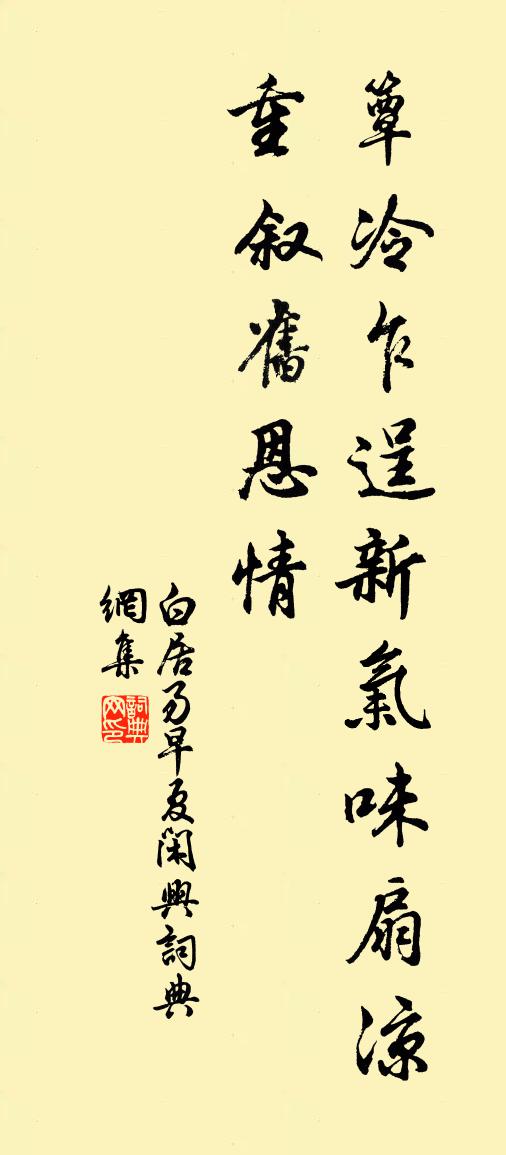 簟冷乍逞新氣味扇涼
重叙舊恩情
白居易早夏閑興詞典
網集
詞典
网印